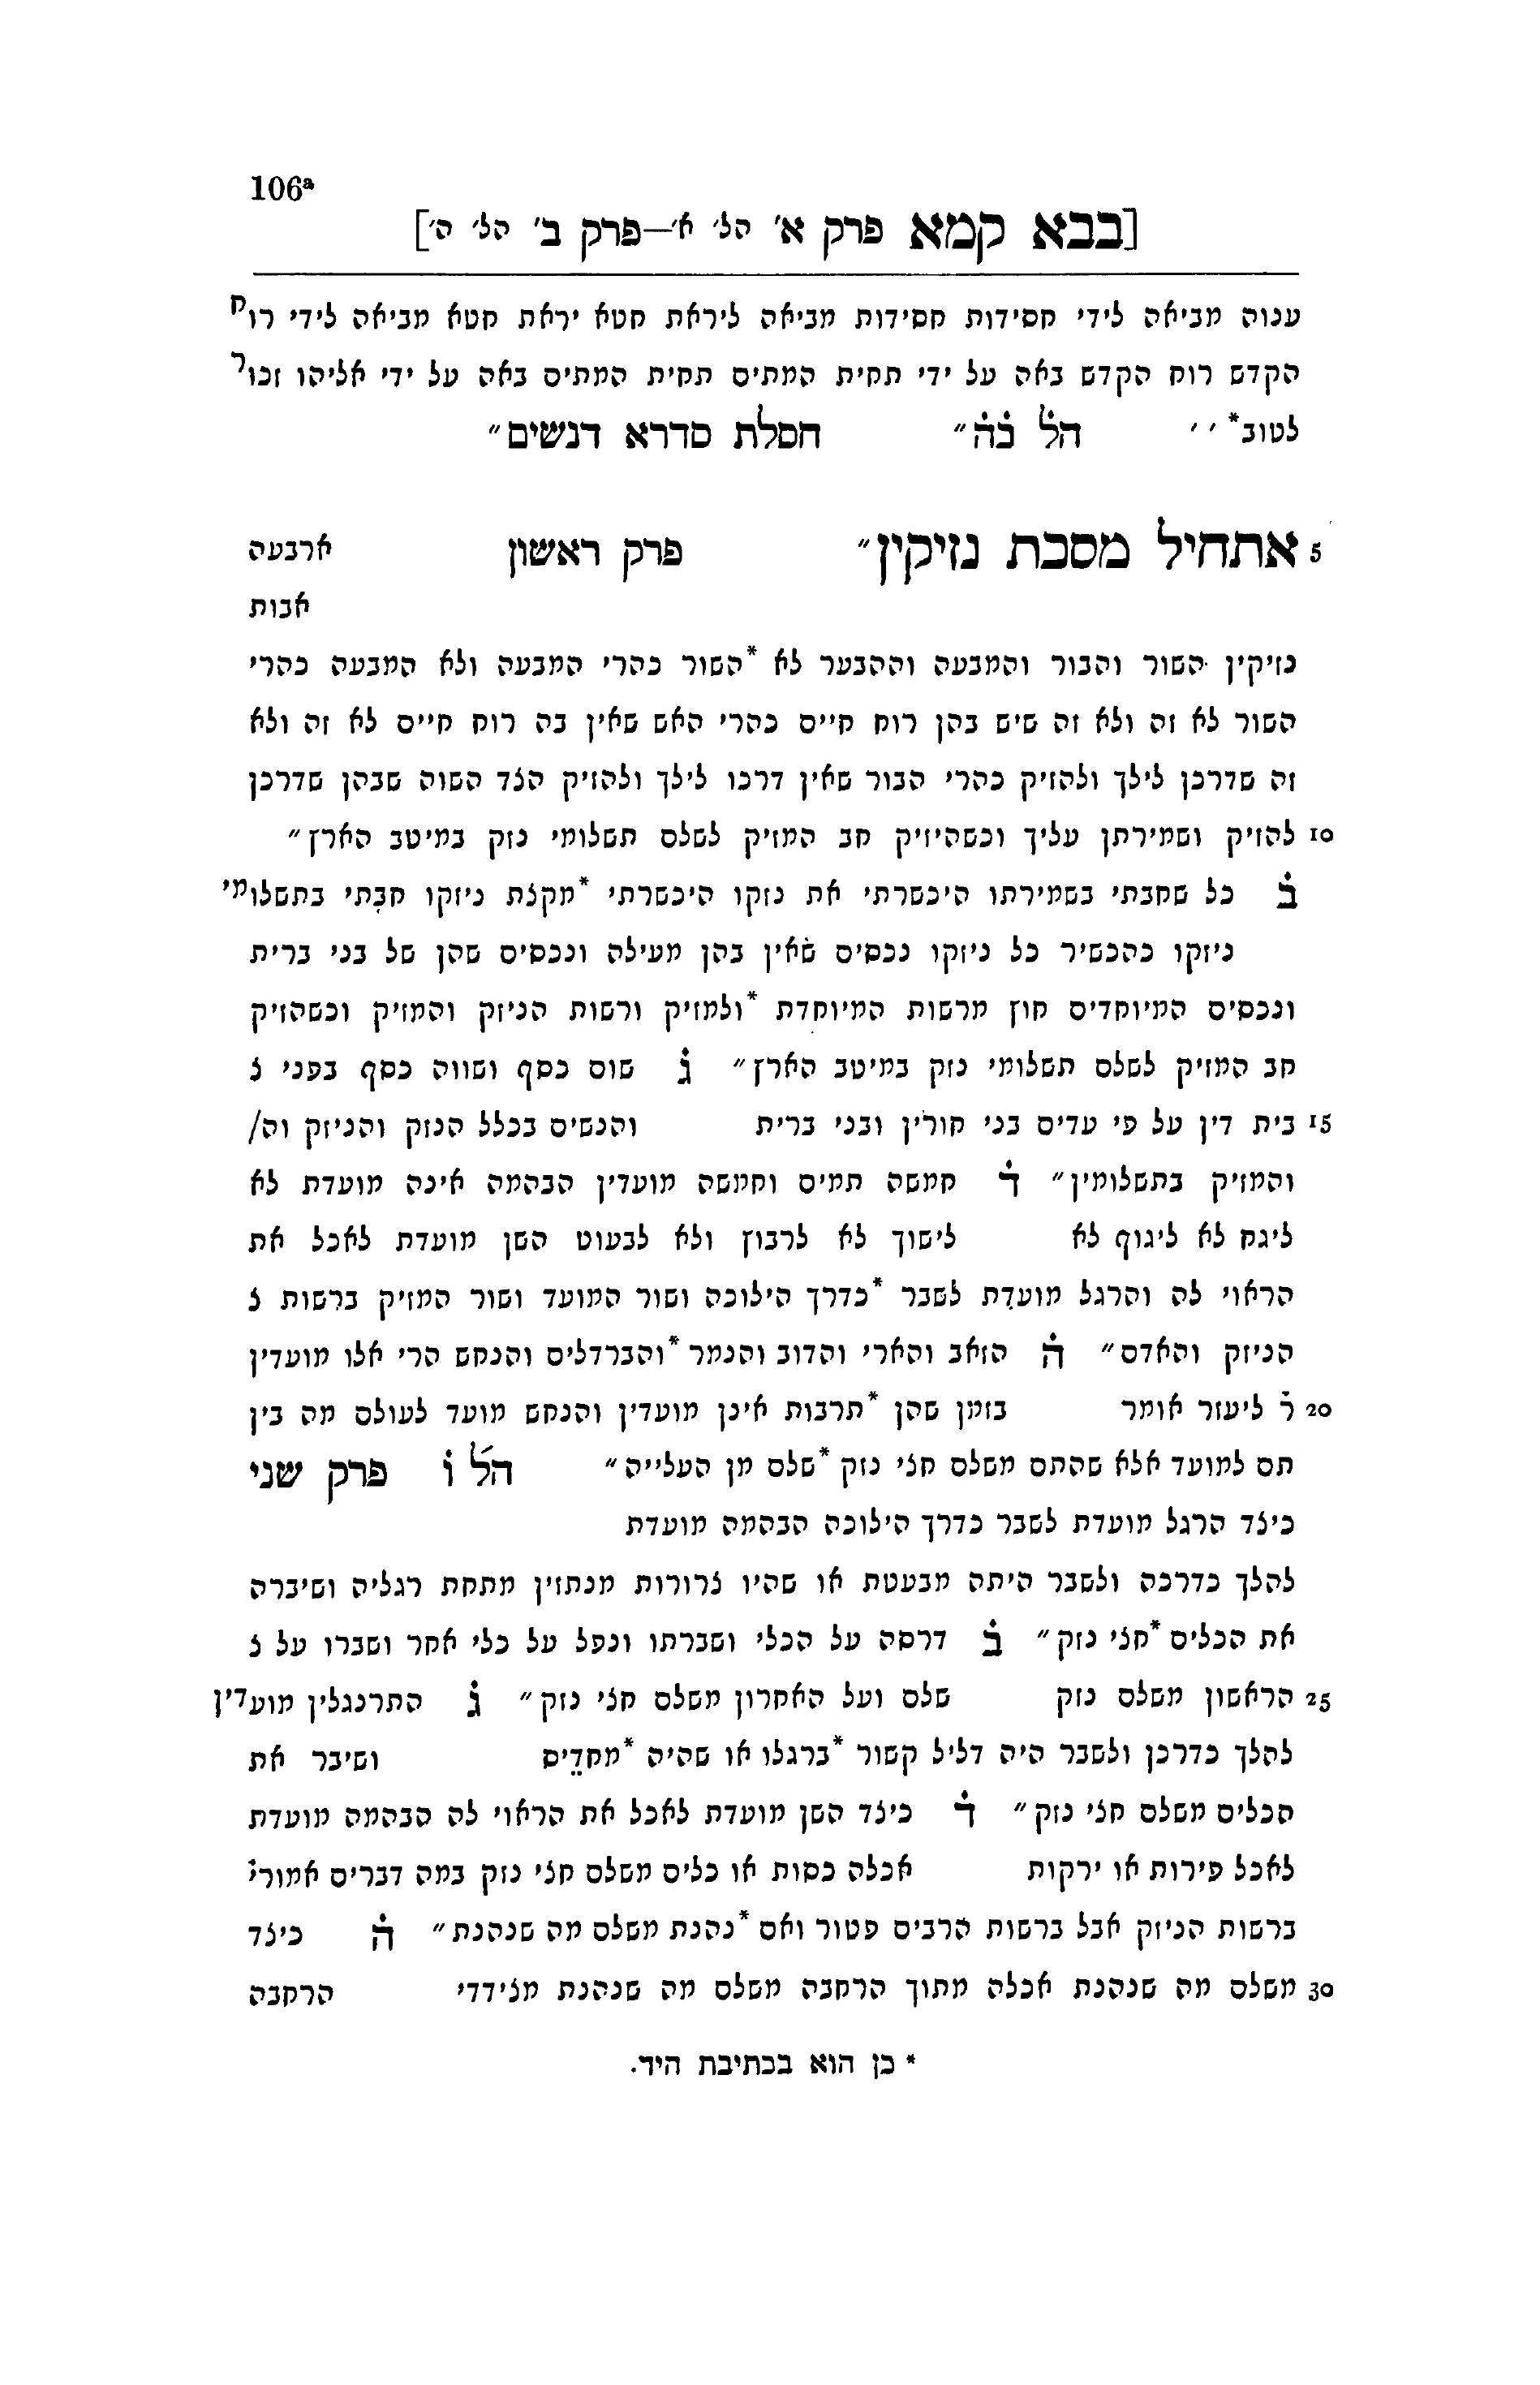 106ª
[בבא קמא פרק א' הל' א'—פרק ב' הל' ה']
ענוה מביאה לידי חסידות חסידות מביאה ליראת חטא יראת חטא מביאה לידי רוח
הקדש רוח הקדש באה על ידי תחית המתים תחית המתים באה על ידי אליהו זכור
לטוב* ׳ ׳ הל̇ כ̇ה̇״ חסלת סדרא דנשים״
5 אתחיל מסכת נזיקין״ פרק ראשון ארבעה
אבות
נזיקין השור והבור והמבעה וההבער לא *השור כהרי המבעה ולא המבעה כהרי
השור לא זה ולא זה שיש בהן רוח חיים כהרי האש שאין בה רוח חיים לא זה ולא
זה שדרכן לילך ולהזיק כהרי הבור שאין דרכו לילך ולהזיק הצד השוה שבהן שדרכן
10 להזיק ושמירתן עליך וכשהיזיק חב המזיק לשלם תשלומי נזק במיטב הארץ״
ב̇ כל שחבתי בשמירתו היכשרתי את נזקו היכשרתי *מקצת ניזקו חבתי בתשלומי
ניזקו כהכשיר כל ניזקו נכסים שאין בהן מעילה ונכסים שהן של בני ברית
ונכסים המיוחדים חוץ מרשות המיוחדת *ולמזיק ורשות הניזק והמזיק וכשהזיק
חב המזיק לשלם תשלומי נזק במיטב הארץ״ ג̇ שום כסף ושווה כסף בפני צ
15 בית דין על פי עדים בני חורין ובני ברית והנשים בכלל הנזק והניזק וה/
והמזיק בתשלומין״ ד̇ חמשה תמים וחמשה מועדין הבהמה אינה מועדת לא
ליגח לא ליגוף לא לישוך לא לרבוץ ולא לבעוט השן מועדת לאכל את
הראוי לה והרגל מועדת לשבר *כדרך הילוכה ושור המועד ושור המזיק ברשות צ
הניזק והאדם״ ה̇ הזאב והארי והדוב והנמר *והברדלים והנחש הרי אלו מועדין
20 ר̇ ליעזר אומר בזמן שהן *תרבות אינן מועדין והנחש מועד לעולם מה בין
תם למועד אלא שהתם משלם חצי נזק *שלם מן העלייה״ הל̇ ו̇ פרק שני
כיצד הרגל מועדת לשבר כדרך הילוכה הבהמה מועדת
להלך כדרכה ולשבר היתה מבעטת או שהיו צרורות מנתזין מתחת רגליה ושיברה
את הכלים *חצי נזק״ ב̇ דרסה על הכלי ושברתו ונפל על כלי אחר ושברו על צ
25 הראשון משלם נזק שלם ועל האחרון משלם חצי נזק״ ג̇ התרנגלין מועדין
להלך כדרכן ולשבר היה דליל קשור *ברגלו או שהיה *מחדים ושיבר את
הכלים משלם חצי נזק״ ד̇ כיצד השן מועדת לאכל את הראוי לה הבהמה מועדת
לאכל פירות או ירקות אכלה כסות או כלים משלם חצי נזק במה דברים אמורי̇
ברשות הניזק אבל ברשות הרבים פטור ואם *נהנת משלם מה שנהנת״ ה̇ כיצד
30 משלם מה שנהנת אכלה מתוך הרחבה משלם מה שנהנת מצידדי הרחבה
* כן הוא בכתיבת היד.